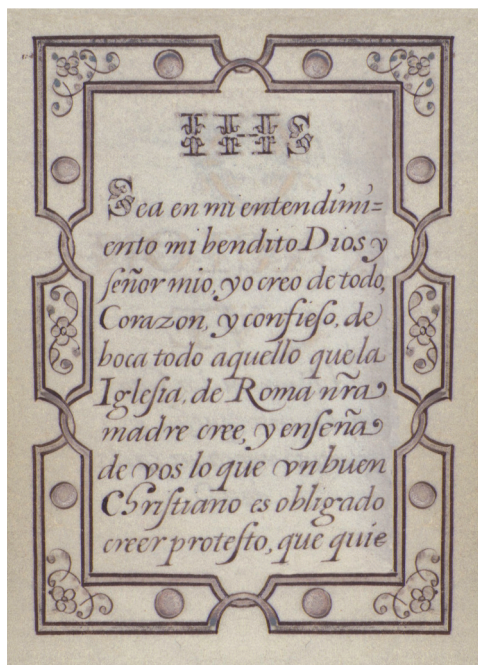 IHS
Sea en mi entendimi=
ento mi bendito Dios y
señor mio, yo creo de todo,
Corazon, y confieso, de
boca todo aquello que la
Iglesia, de Roma nr̃a
madre cree, y enseña
de vos lo que vn buen
Christiano es obligado
creer protesto, que quie